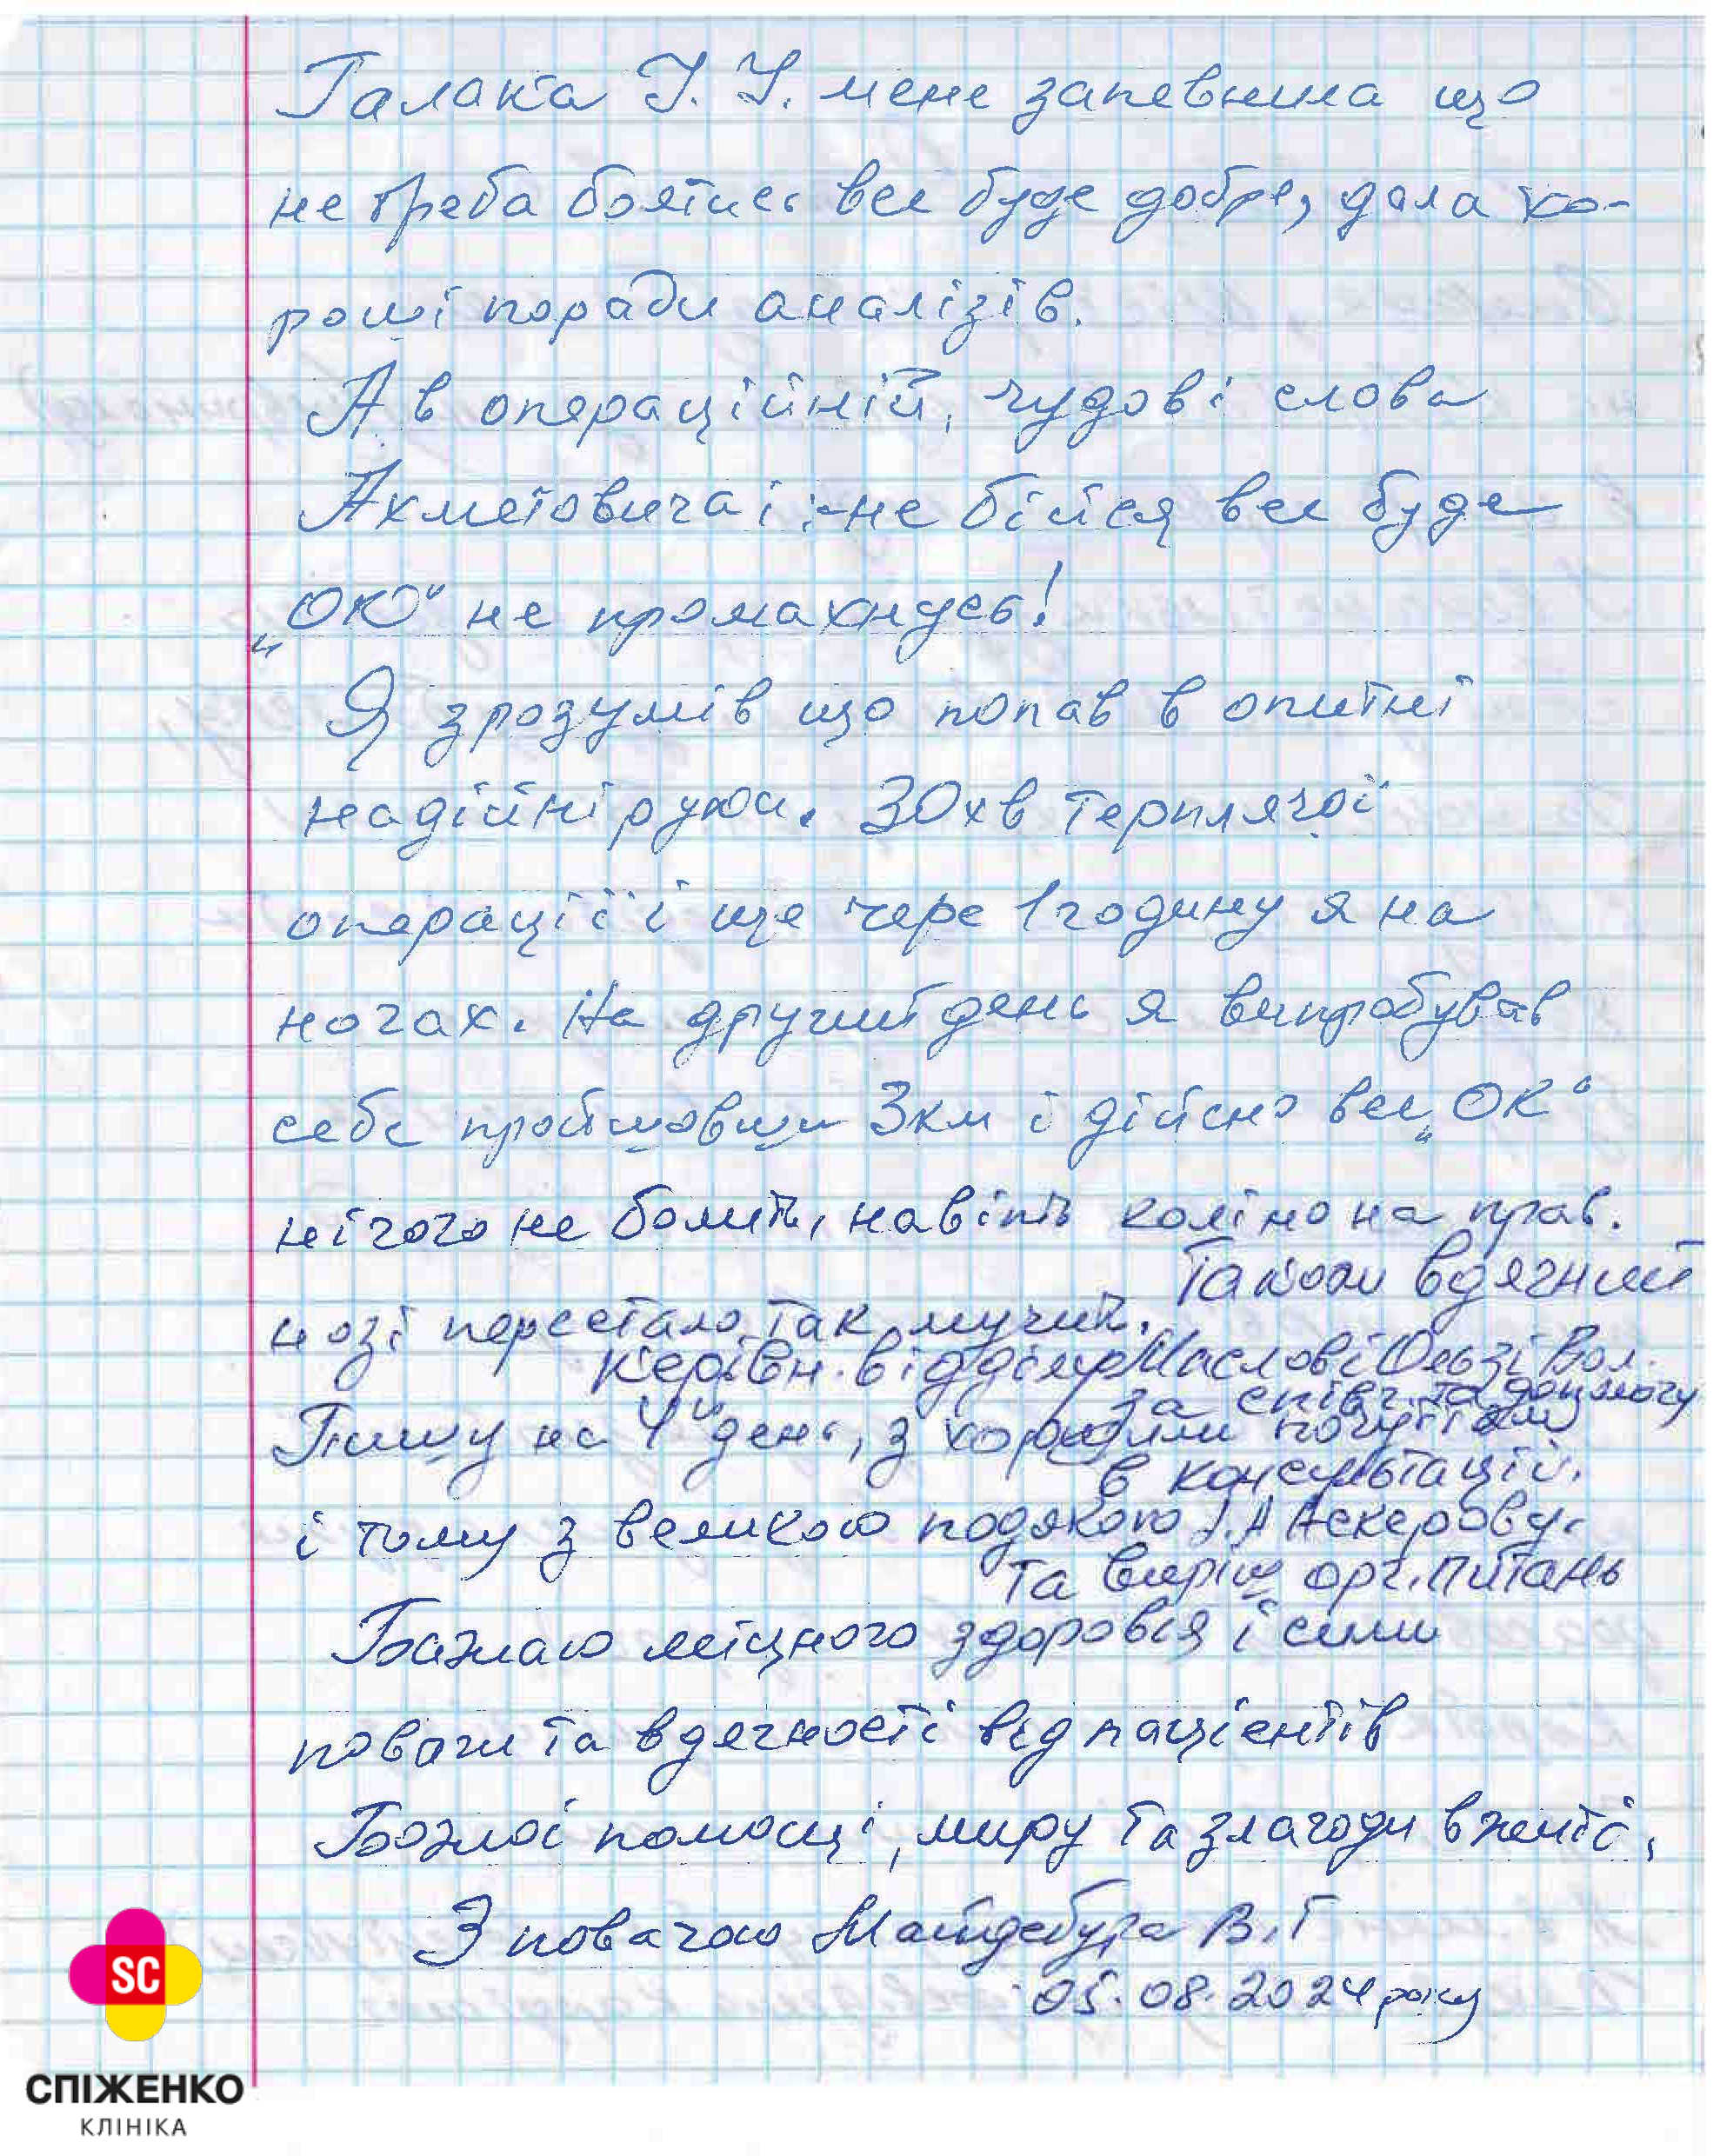 Галака І. І. мене запевнила що
не треба боятись все буде добре, дала хо-
роші поради аналізів.
А в операційній, чудові слова
Ахметовича і :-не бійся все буде
„ОК“ не промахнусь!
Я зрозумів що попав в опитні
надійні руки. 30хв терплячої
операції і ще чере 1 годину я на
ногах. На другий день я випробував
себе пройшовши 3км і дійсно все „ОК“
нічого не болить, навіть коліно на прав.
Також вдячний
нозі перестало так мучить.
Керівн. відділу Масловій Ользі Вол.
за співч. та допомогу
Пишу на 4й день, з хорошими почуттями
в консультації.
і тому з великою подякою І.А Аскерову.
та виріш орг. питань
Бажаю міцного здоровія і сили
поваги та вдячності від пацієнтів
Божої помощі, миру та злагоди в житті,
З повагою Майдебура В.Г
05.08.2024 року
SC
СПІЖЕНКО
КЛІНІКА